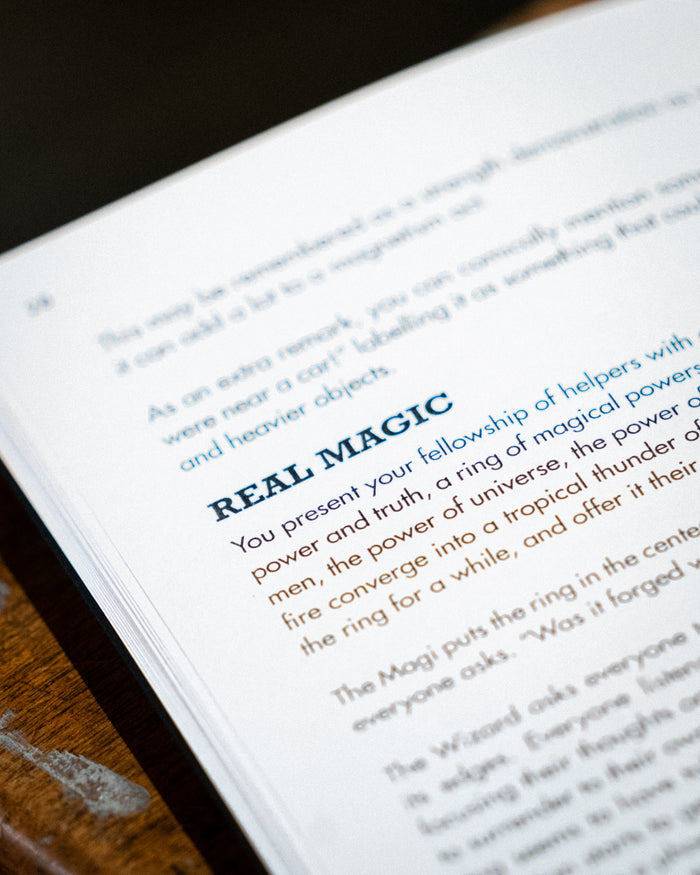 This may be remembered as a strength demonstration
it can add a lot to a magnetism act
As an extra remark, you can comically mention
were near a car!" labelling it as something that
and heavier objects.
REAL MAGIC
You present your fellowship of helpers with
power and truth, a ring of magical powers
men, the power of universe, the power
fire converge into a tropical thunder of
the ring for a while, and offer it their
The Magi puts the ring in the
everyone asks. "Was it forged
The Wizard asks everyone
its edges. Everyone
focusing their thoughts
to surrender to their
seems to